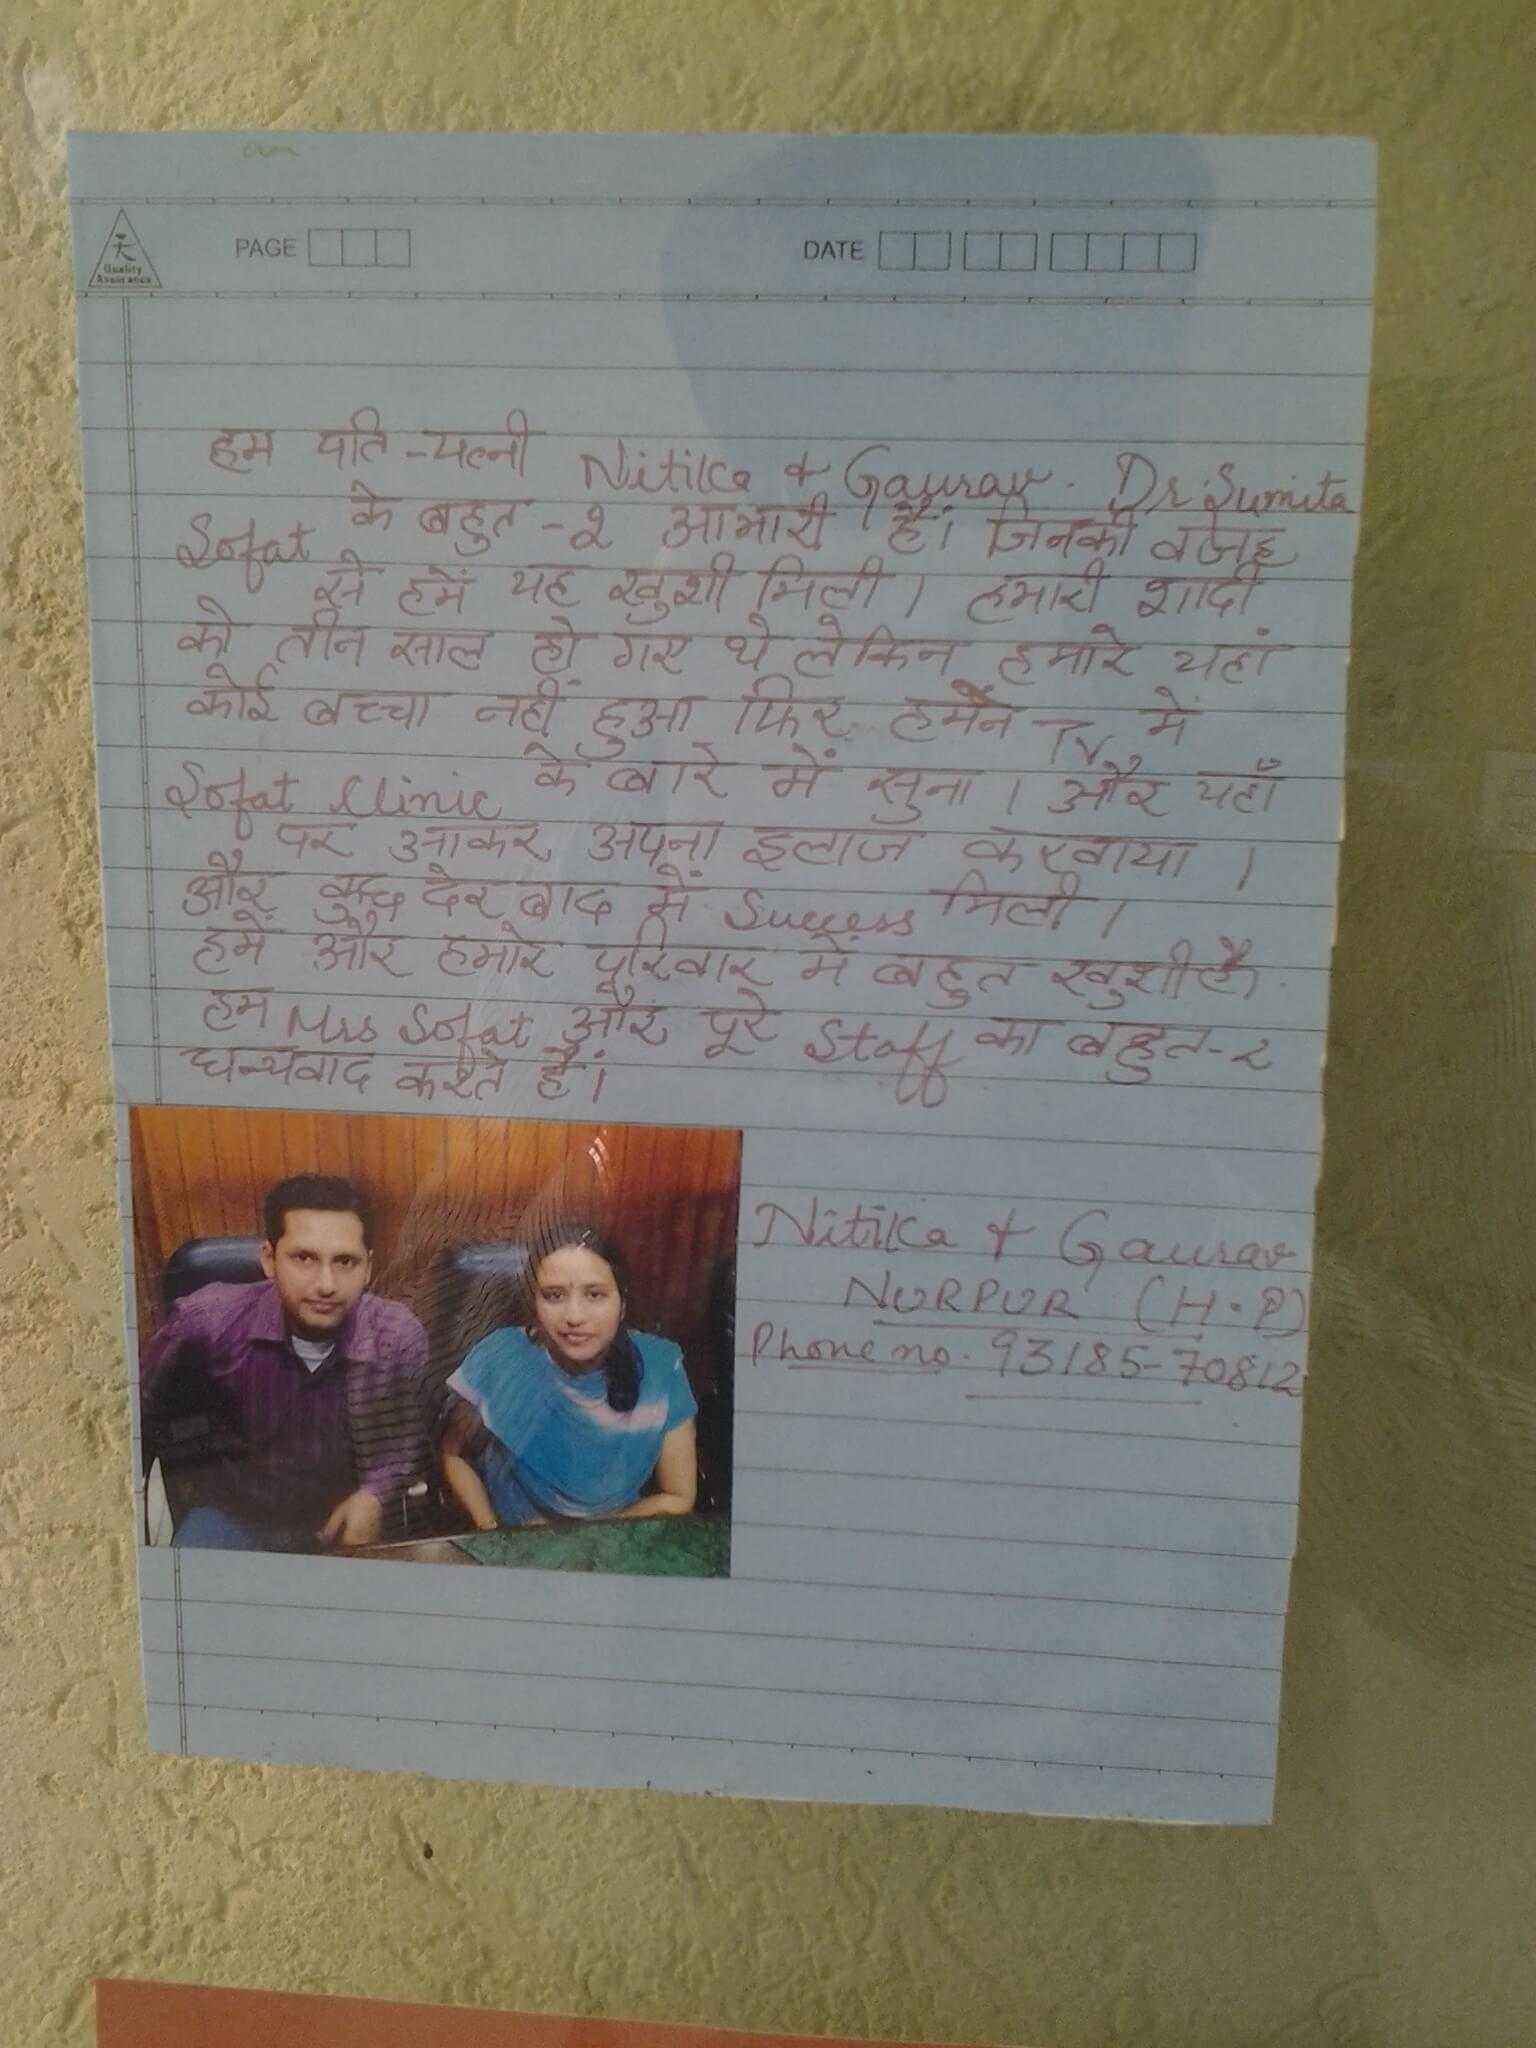 天
Quality
Assurance
PAGE
DATE
हम पति-पत्नी Nitika & Gaurav. Dr. Sumita
Sofat के बहुत-२ आभारी हैं। जिनकी वजह
से हमें यह खुशी मिली। हमारी शादी
को तीन साल हो गए थे लेकिन हमारे यहां
कोई बच्चा नहीं हुआ फिर हमने TV में
Sofat Clinic के बारे में सुना। और यहाँ
पर आकर अपना इलाज करवाया।
और कुछ देर बाद में Success मिली।
हमें और हमारे परिवार में बहुत खुशी है।
हम Mrs Sofat और पूरे Staff का बहुत-२
धन्यवाद करते हैं।
Nitika & Gaurav
NURPUR (H.P)
Phone no. 93185-70812